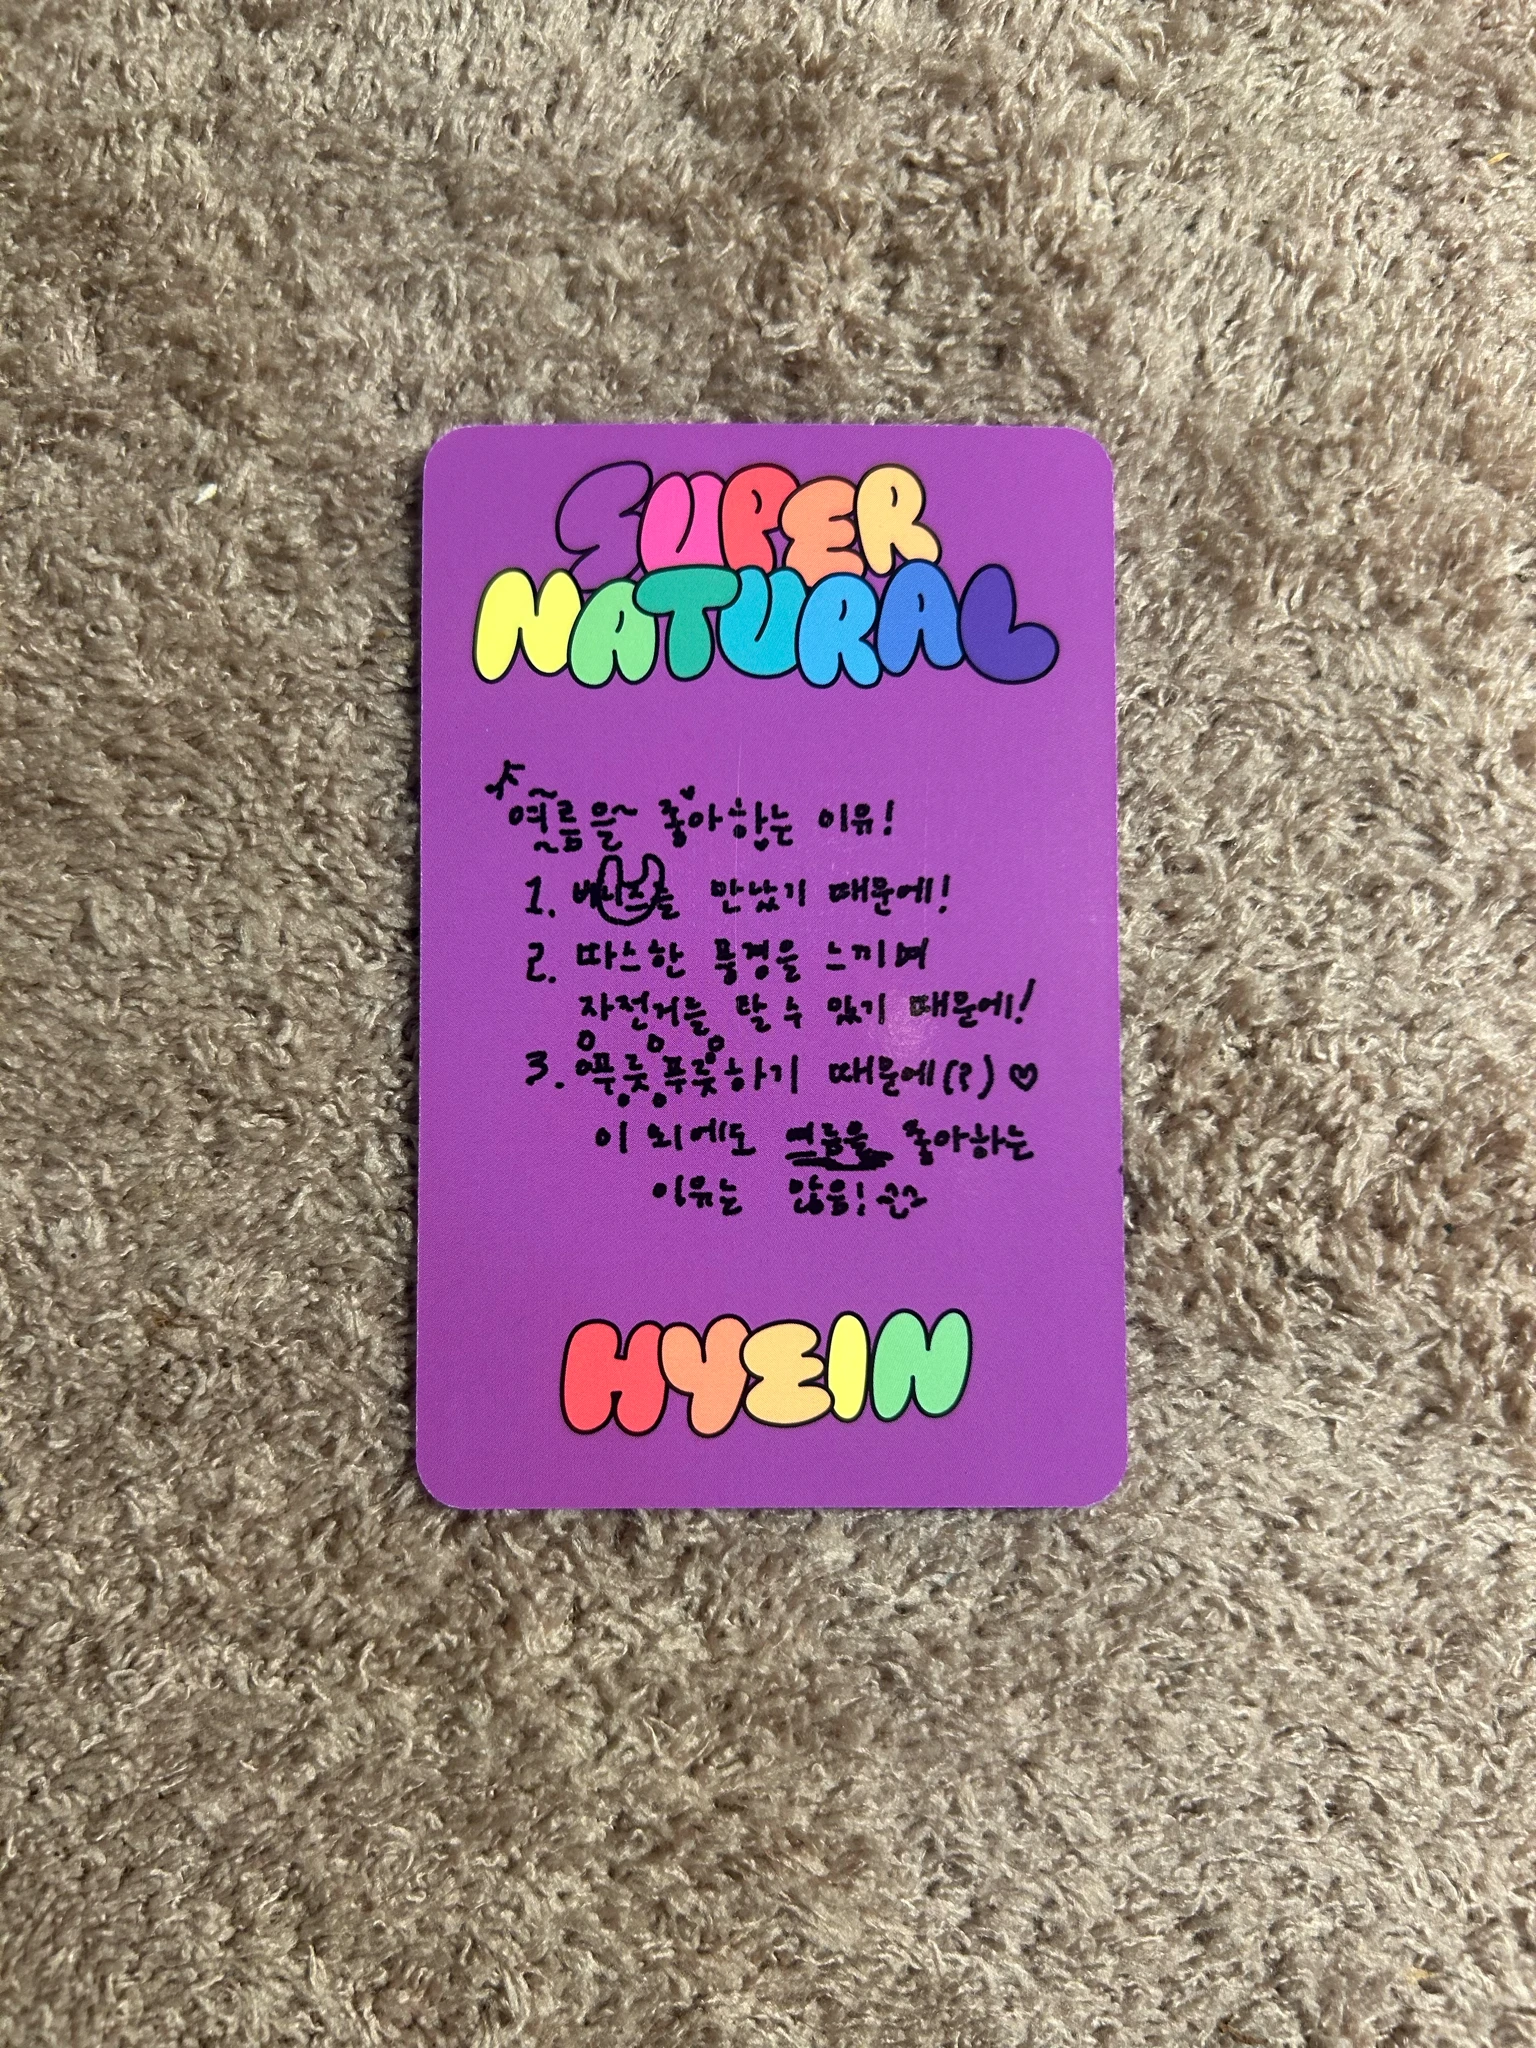 SUPER
NATURAL
여름을~ 좋아하는 이유!
1. 버니즈를 만났기 때문에!
2. 따스한 풍경을 느끼며
자전거를 탈 수 있기 때문에!
3. 푸릇푸릇하기 때문에(?) ♡
이 외에도 여름을 좋아하는
이유는 많음!
HYEIN